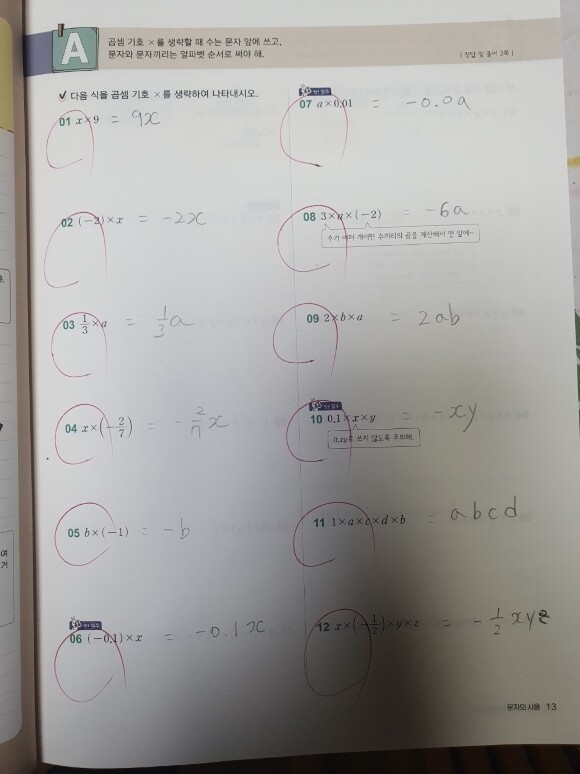 A
곱셈 기호 ×를 생략할 때 수는 문자 앞에 쓰고,
문자와 문자끼리는 알파벳 순서로 써야 해.
[정답 및 풀이 2쪽]
✔ 다음 식을 곱셈 기호 ×를 생략하여 나타내시오.
01 x×9 = 9x
02 (−2)×x = −2x
03 1/3×a = 1/3a
04 x×(−2/7) = −2/7x
05 b×(−1) = −b
06 (−0.1)×x = −0.1x
07 a×0.01 = −0.0a
08 3×a×(−2) = −6a
수가 여러 개이면 수끼리의 곱을 계산해서 맨 앞에~
09 2×b×a = 2ab
10 0.1×x×y = −xy
0.xy로 쓰지 않도록 주의해.
11 1×a×c×d×b = abcd
12 x×(−1/2)×y×z = −1/2xyz
문자의 사용 13
여
거